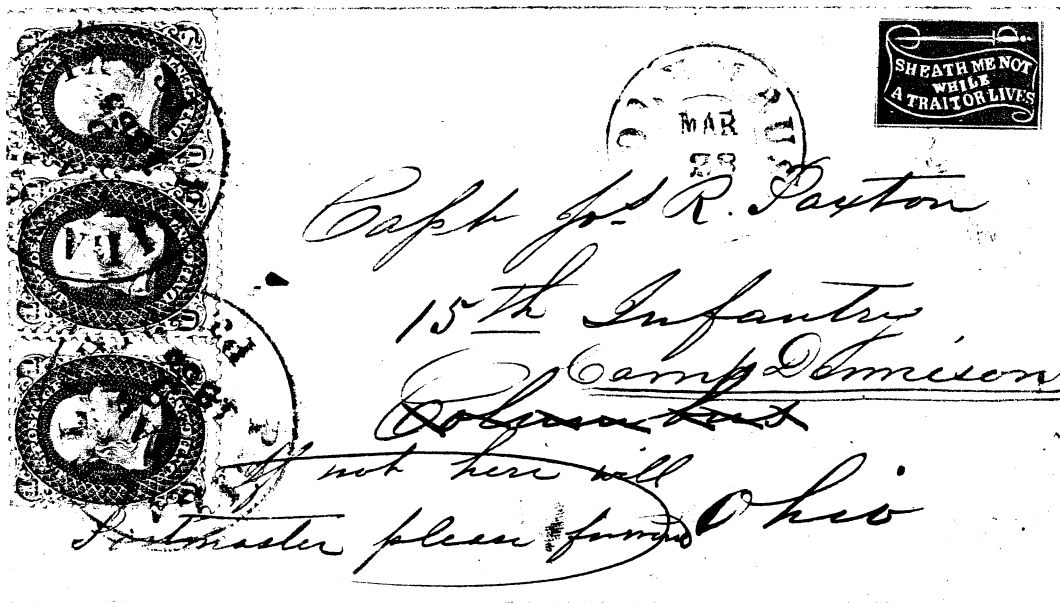 SHEATH ME NOT
WHILE
A TRAITOR LIVES
MAR
28
Capt Jos R. Paxton
15th Infantry
Camp Dennison
Columbus
If not here will
Postmaster please forward
Ohio